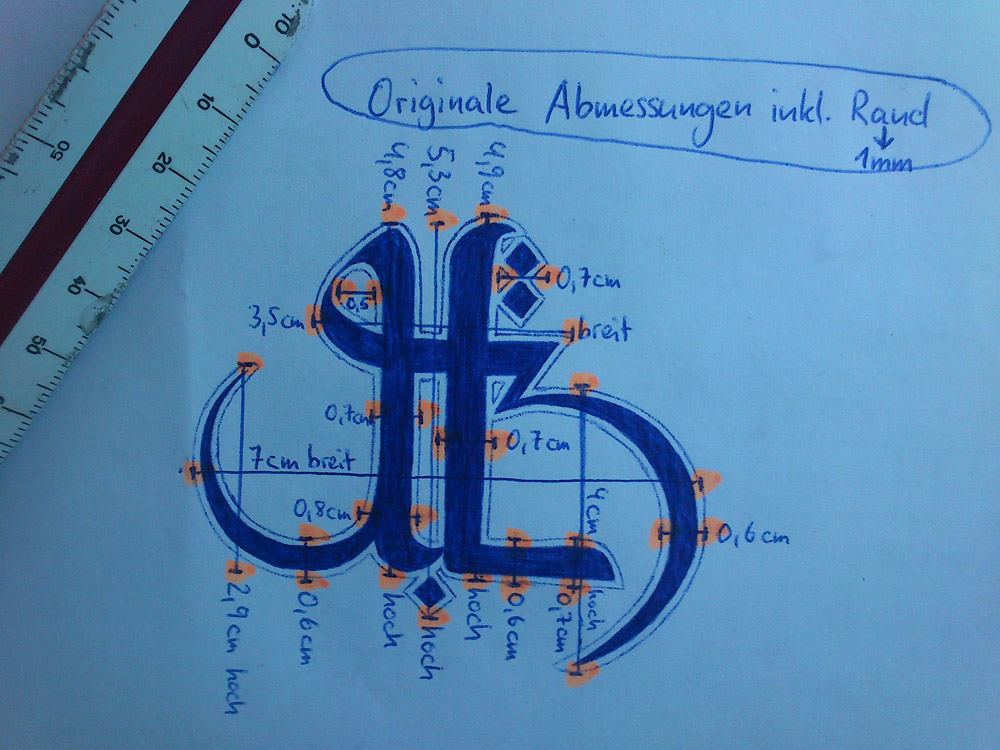 Originale Abmessungen inkl. Rand
1mm
4,8cm
5,3cm
4,9cm
0,7cm
0,5
3,5cm
breit
0,7cm
0,7cm
7cm breit
4cm
0,8cm
0,6cm
2,9cm hoch
0,6cm
hoch
hoch
hoch
0,6cm
0,7cm
hoch
70
0
10
20
30
40
50
50